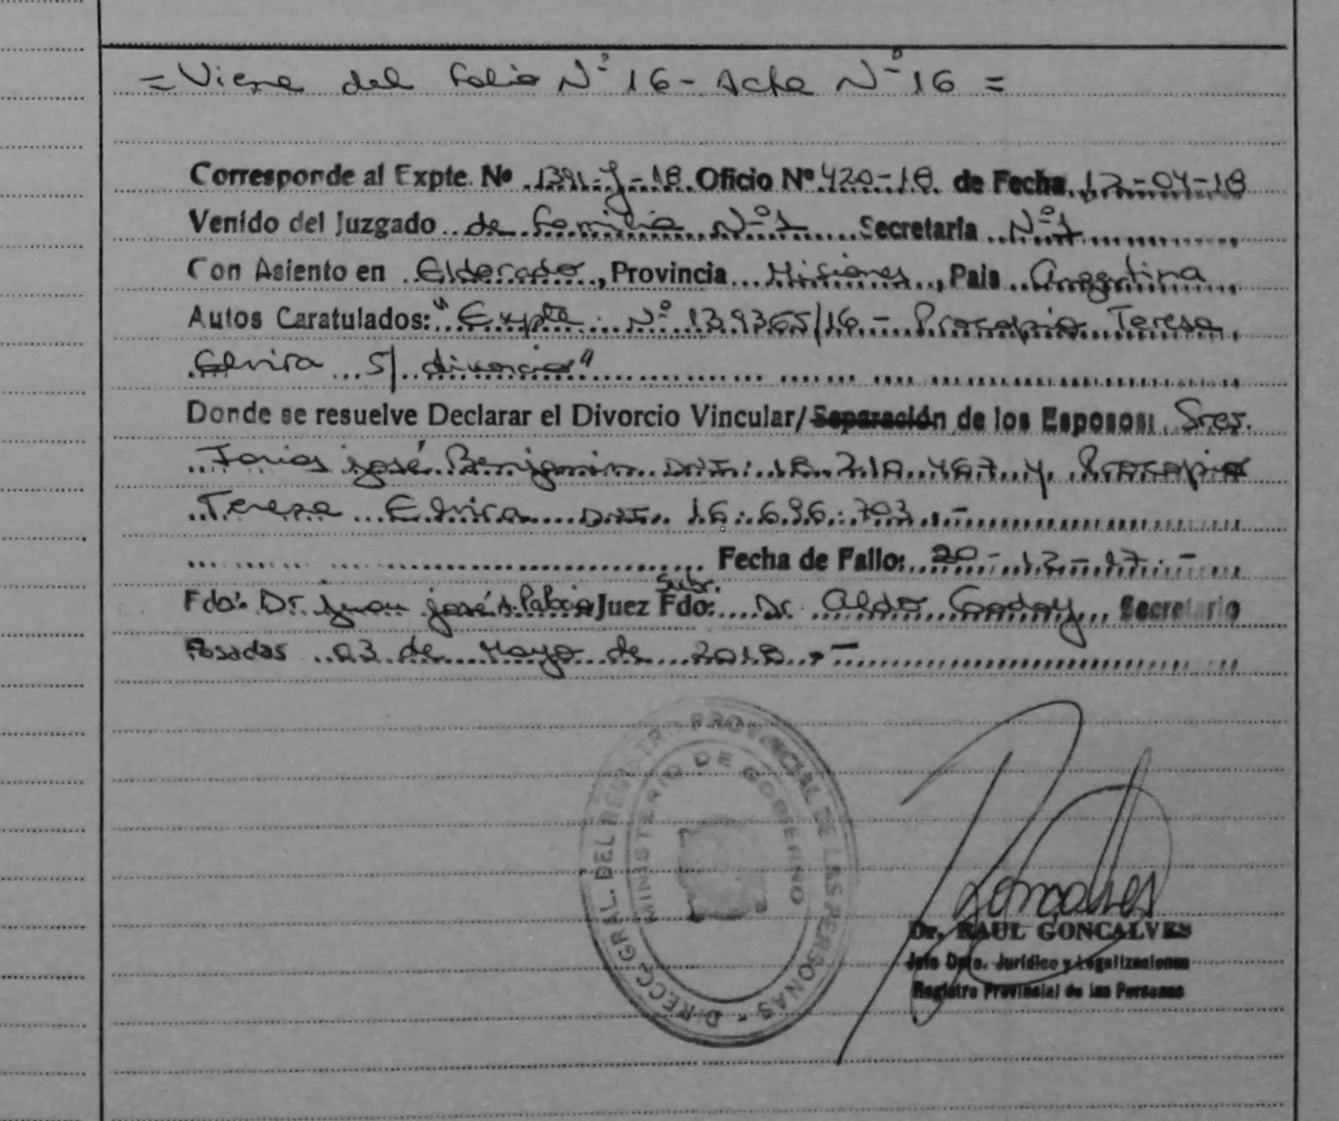 = Viene del folio Nº 16 - Acta Nº 16 =
Corresponde al Expte. Nº 1391-J-18 Oficio Nº 420-18. de Fecha 17-04-18
Venido del Juzgado de Familia Nº 1 Secretaria Nº 1
Con Asiento en Eldorado, Provincia Misiones, Pais Argentina
Autos Caratulados: "Expte. Nº 139365/16 - Procopio Teresa
Elvira S/ divorcio"
Donde se resuelve Declarar el Divorcio Vincular/Separación de los Esposos: Sres.
José Benjamin DNI: 18.210.467 y Procopio
Teresa Elvira DNI. 16.696.703.-
Fecha de Fallo: 20-12-17.-
Fdo: Dr. Juan José A. Juez Subr. Fdo: Dr. Aldo Godoy, Secretario
Posadas 03 de Mayo de 2018.-
DIRECC. GRAL. DEL REGISTRO PROVINCIAL DE LAS PERSONAS -
MINISTERIO DE GOBIERNO
Goncalves
Dr. RAUL GONCALVES
Jefe Dpto. Jurídico y Legalizaciones
Registro Provincial de las Personas